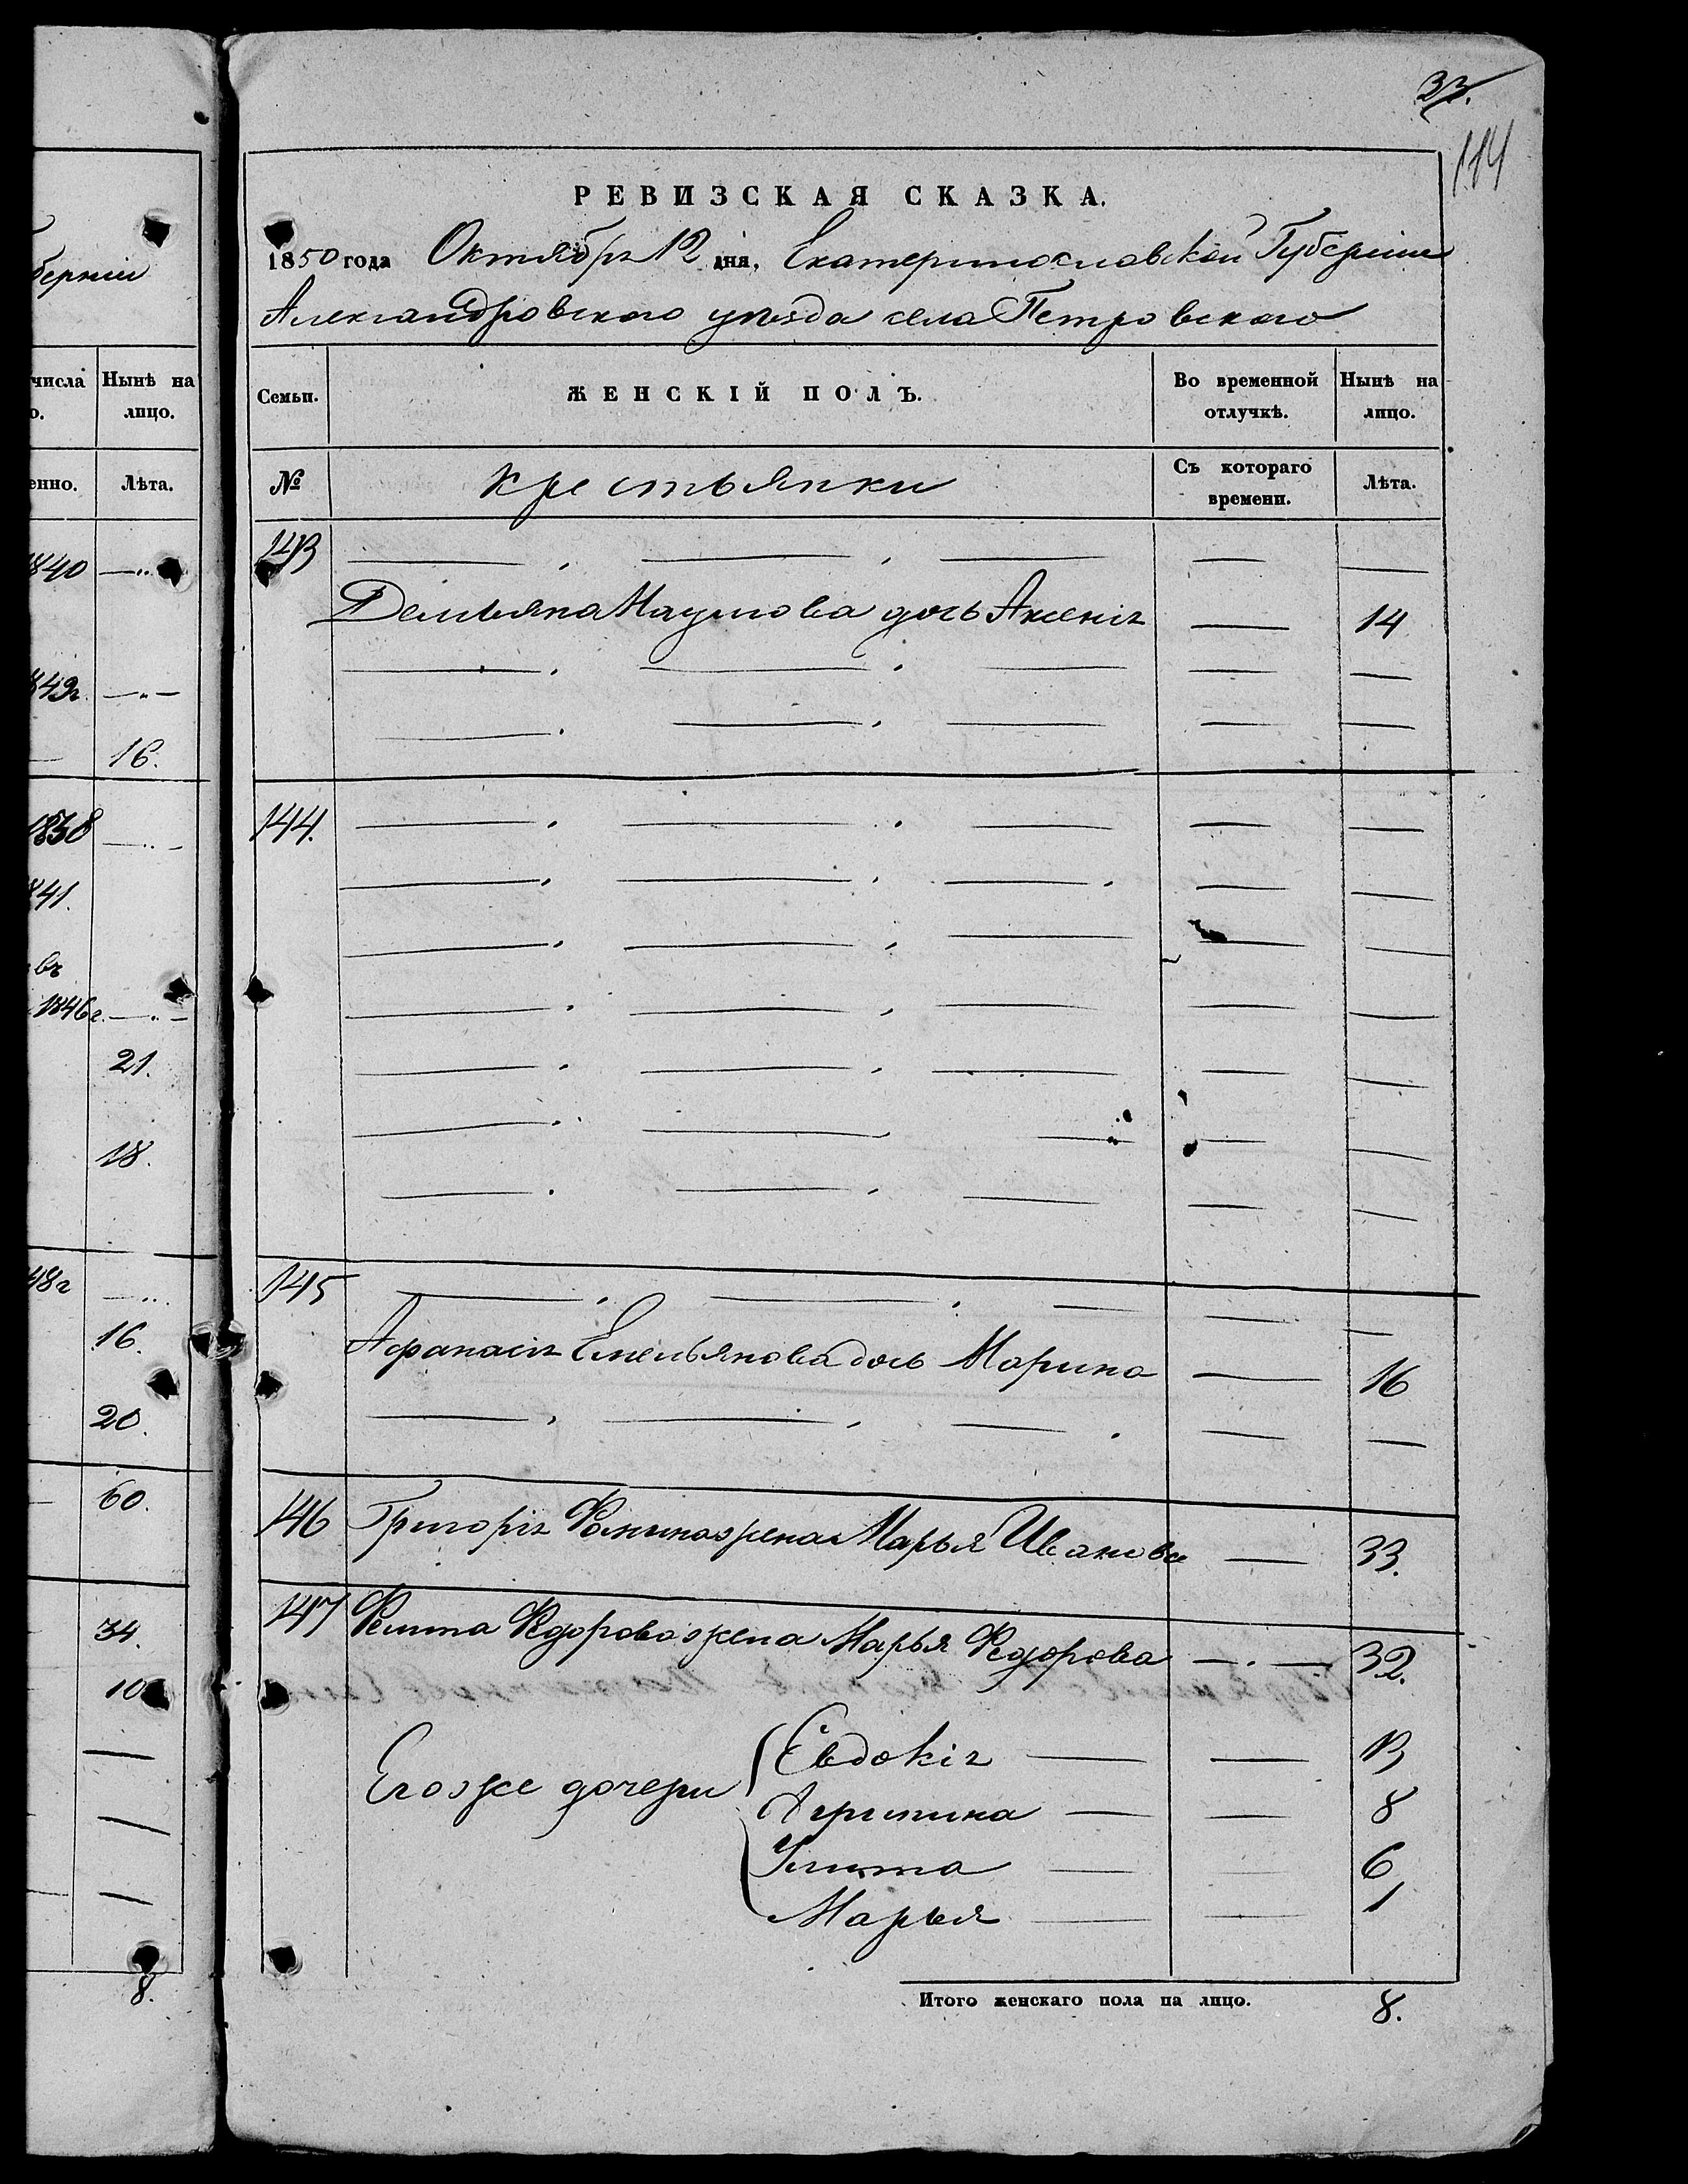 33.
114
РЕВИЗСКАЯ СКАЗКА.
1850 года Октября 12 дня, Екатеринославской Губерніи
Александровского уѣзда села Петровского
берніи
числа
о.
Нынѣ на
лицо.
Семьи.
ЖЕНСКІЙ ПОЛЪ.
Во временной
отлучкѣ.
Нынѣ на
лицо.
енно.
Лѣта.
№
крестьянки
Съ котораго
времени.
Лѣта.
1840
143
Демьяна Наумова дочь Аксенія — 14
849г.
16.
1838
144.
841.
въ
1846г.
21.
18.
48г
145
16.
Афанасія Емельянова дочь Марина — 16
20.
60.
146 Григорія Фомина жена Марья Иванова — 33.
34.
147 Филипа Федорова жена Марья Федорова — 32.
10
Его же дочери
Евдокія — — 13
Агрипина — — 8
Улита — — 6
Марья — — 1
8.
Итого женскаго пола на лицо. 8.